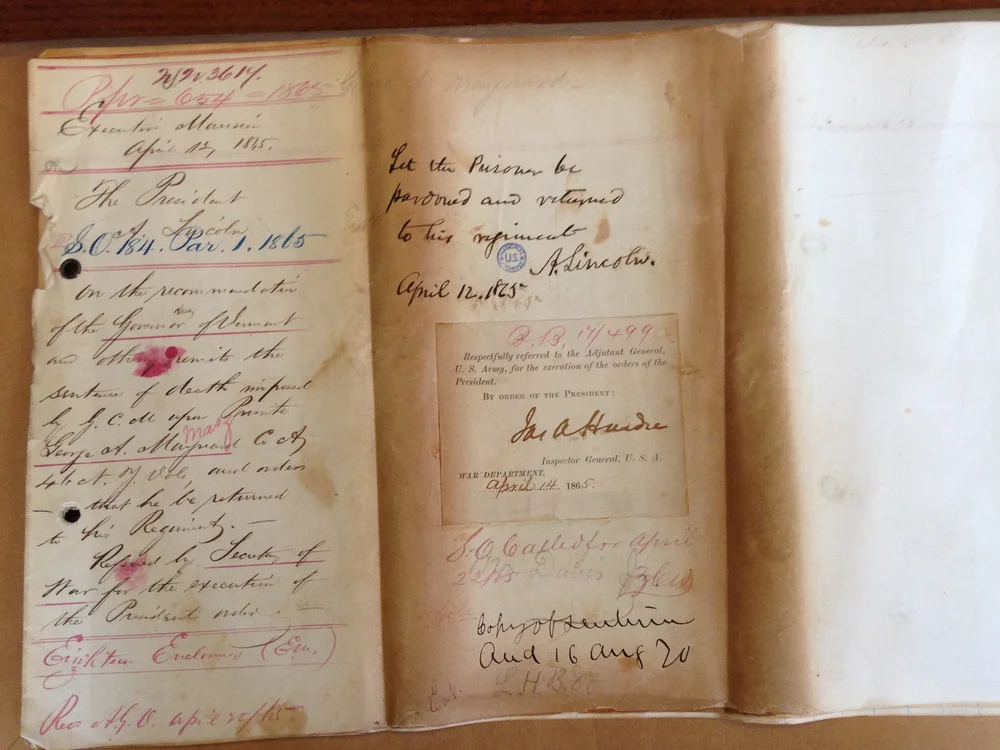 1865
Executive Mansion
April 12, 1865.
The President
A. Lincoln
S.O. 184. Par. 1. 1865
On the recommendation
of the Governor of Vermont
and others, remits the
sentence of death imposed
by G. C. M upon Private
George A. Maynard Co A,
46th N.Y. Vols, and orders
that he be returned
to his Regiment. —
Referred by Secretary of
War for the execution of
the President order. —
Eighteen Enclosures
Rec A.G.O. april 20/65
Let the Prisoner be
pardoned and returned
to his regiment
U.S.
A. Lincoln.
April 12. 1865
P.B, 17/499
Respectfully referred to the Adjutant General,
U. S. Army, for the execution of the orders of the
President.
BY ORDER OF THE PRESIDENT:
Jas A Hardie
Inspector General, U. S. A.
WAR DEPARTMENT,
April 14. 1865.
S.O. Called for april
22
Copy of
Aug 70
L.H.